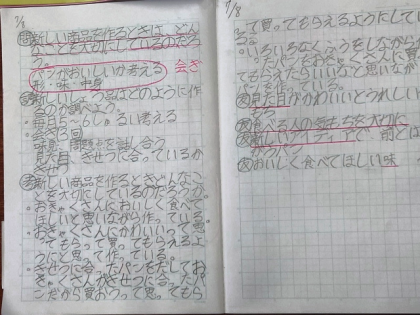 7/8
新しい商品を作るときは、どん
なことを大切にしているのだろ
う。
パンがおいしいか考える 会ぎ
形・味・中身
新しいしょう品はどのように作
るのか調べよう。
毎日5〜6しゅるい考える
会ぎ3回
味見、問題点を話し合う
見た目、きせつに合っているか
新しい商品を作るときどんなこ
とを大切にしているのだろうか。
おきゃくさんにおいしく食べて
ほしいと思いながら作っている。
おきゃくさんにかわいいって思
ってもらって買ってもらえるよ
うにと思って作っている。
きせつに合ったパンをだしてお
きゃくさんがきせつに合ったパ
ンだから買おうって思ってもら
7/8
って買ってもらえるようにして
いる。
いろいろなくふうをしながら作
ったパンをおきゃくさんに買っ
てもらえたらいいなと思いなが
らパンを作っている。
見た目がかわいいとうれしい
食べる人の気もちを大切に
新しいアイディアで、前とは
ちがうパン
おいしく食べてほしい味